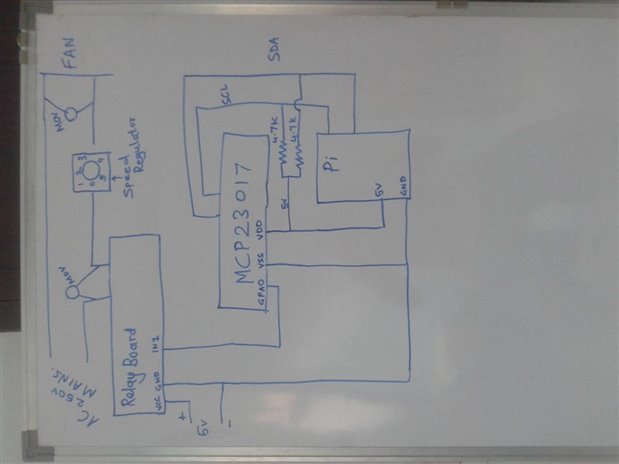 FAN
SDA
SCL
MOV
4.7K
4.7K
0 1 2 3 4 5
Speed
Regulator
Pi
5V
GND
5V
MCP23017
VDD
VSS
GPA0
MOV
Relay Board
IN2
GND
VCC
AC
250V
MAINS.
+
5V
-